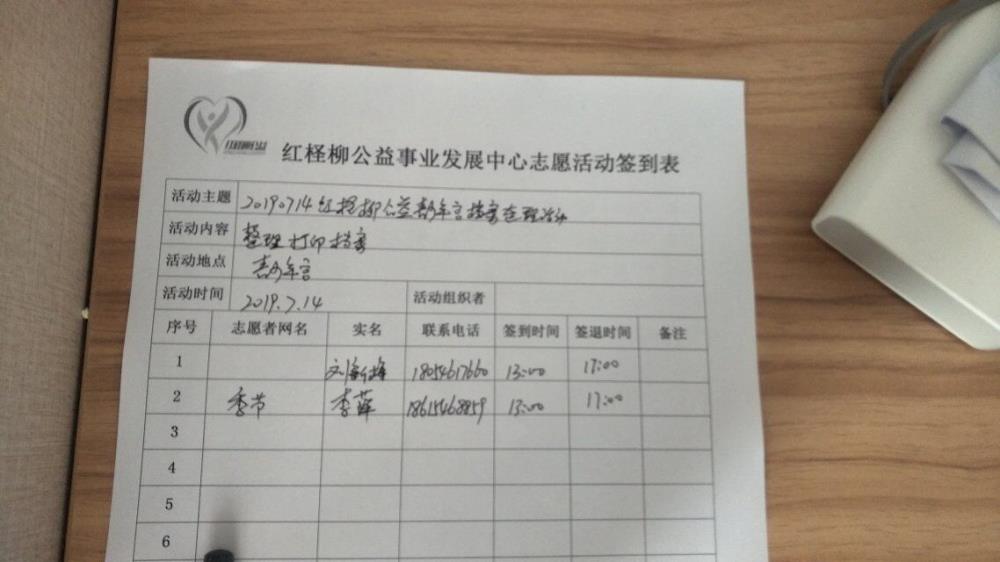 红柽柳公益事业发展中心志愿活动签到表
活动主题 20190714红柽柳公益青少年宫档案整理活动
活动内容 整理打印档案
活动地点 青少年宫
活动时间 2019.7.14 活动组织者
序号 志愿者网名 实名 联系电话 签到时间 签退时间 备注
1 刘 18054617660 13:00 17:00
2 季节 李萍 18615468859 13:00 17:00
3
4
5
6